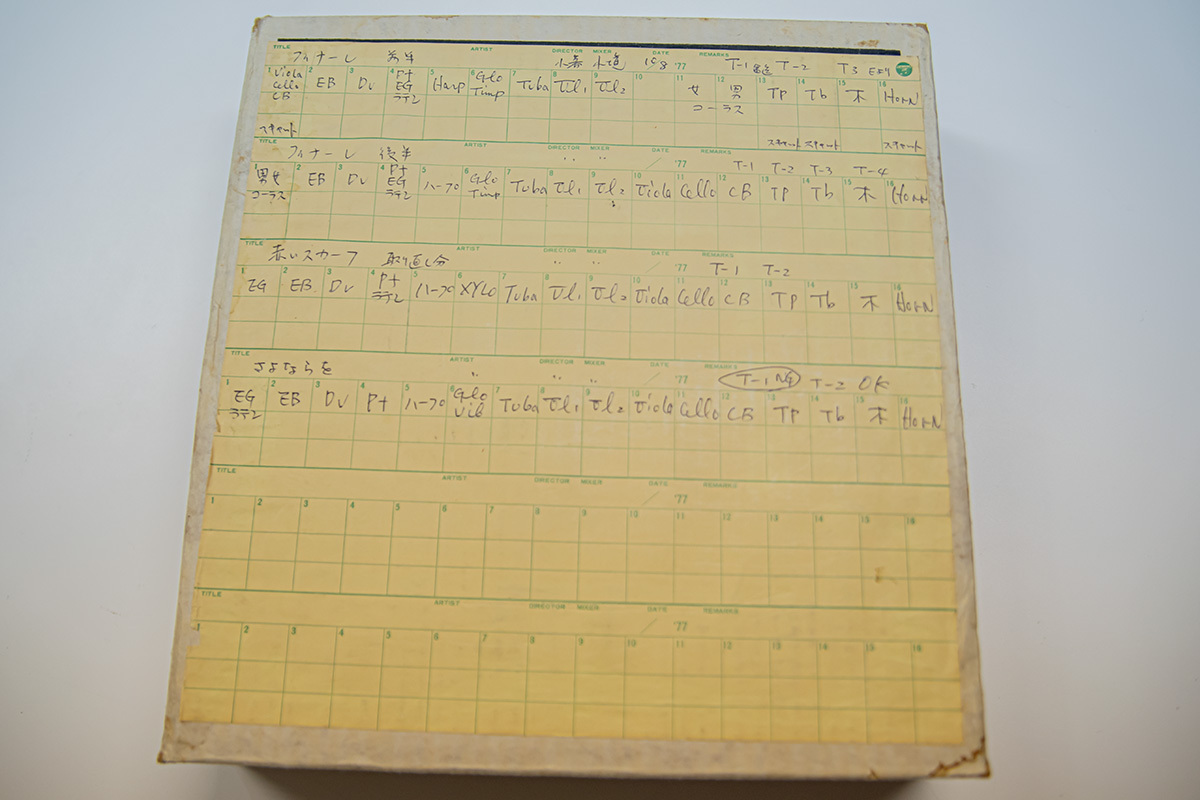 TITLE ARTIST DIRECTOR MIXER DATE REMARKS
フィナーレ 前半 '77 T-1 T-2 T3
1 2 3 4 5 6 7 8 9 10 11 12 13 14 15 16
Viola Cello CB EB Dr Pf EG ラテン Harp Glo Timp Tuba Vl1 Vl2 女 男 コーラス TP Tb 木 HORN
TITLE ARTIST DIRECTOR MIXER DATE REMARKS
フィナーレ 後半 '77 T-1 T-2 T-3 T-4
1 2 3 4 5 6 7 8 9 10 11 12 13 14 15 16
男女 コーラス EB Dr Pf EG ラテン ハープ Glo Timp Tuba Vl1 Vl2 Viola Cello CB TP Tb 木 HORN
TITLE ARTIST DIRECTOR MIXER DATE REMARKS
赤いスカーフ 取り直し分 '77 T-1 T-2
1 2 3 4 5 6 7 8 9 10 11 12 13 14 15 16
EG EB Dr Pf ラテン ハープ XYLO Tuba Vl1 Vl2 Viola Cello CB TP Tb 木 HORN
TITLE ARTIST DIRECTOR MIXER DATE REMARKS
さよならを '77 T-1 NG T-2 OK
1 2 3 4 5 6 7 8 9 10 11 12 13 14 15 16
EG ラテン EB Dr Pf ハープ Glo Vib Tuba Vl1 Vl2 Viola Cello CB TP Tb 木 HORN
TITLE ARTIST DIRECTOR MIXER DATE REMARKS
'77
1 2 3 4 5 6 7 8 9 10 11 12 13 14 15 16
TITLE ARTIST DIRECTOR MIXER DATE REMARKS
'77
1 2 3 4 5 6 7 8 9 10 11 12 13 14 15 16